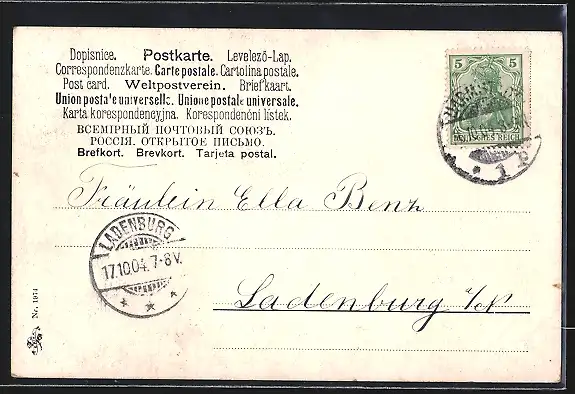 Dopisnice. Postkarte. Levelező-Lap.
Correspondenzkarte. Carte postale. Cartolina postale.
Post card. Weltpostverein. Briefkaart.
Union postale universelle. Unione postale universale.
Karta korespondencyjna. Korespondenční lístek.
ВСЕМІРНЫЙ ПОЧТОВЫЙ СОЮЗЪ.
РОССІЯ. ОТКРЫТОЕ ПИСЬМО.
Brefkort. Brevkort. Tarjeta postal.
5 5
DEUTSCHES REICH
1 P
Fräulein Ella Benz
LADENBURG
17.10.04. 7-8 V.
Ladenburg a/N
Nr. 1974